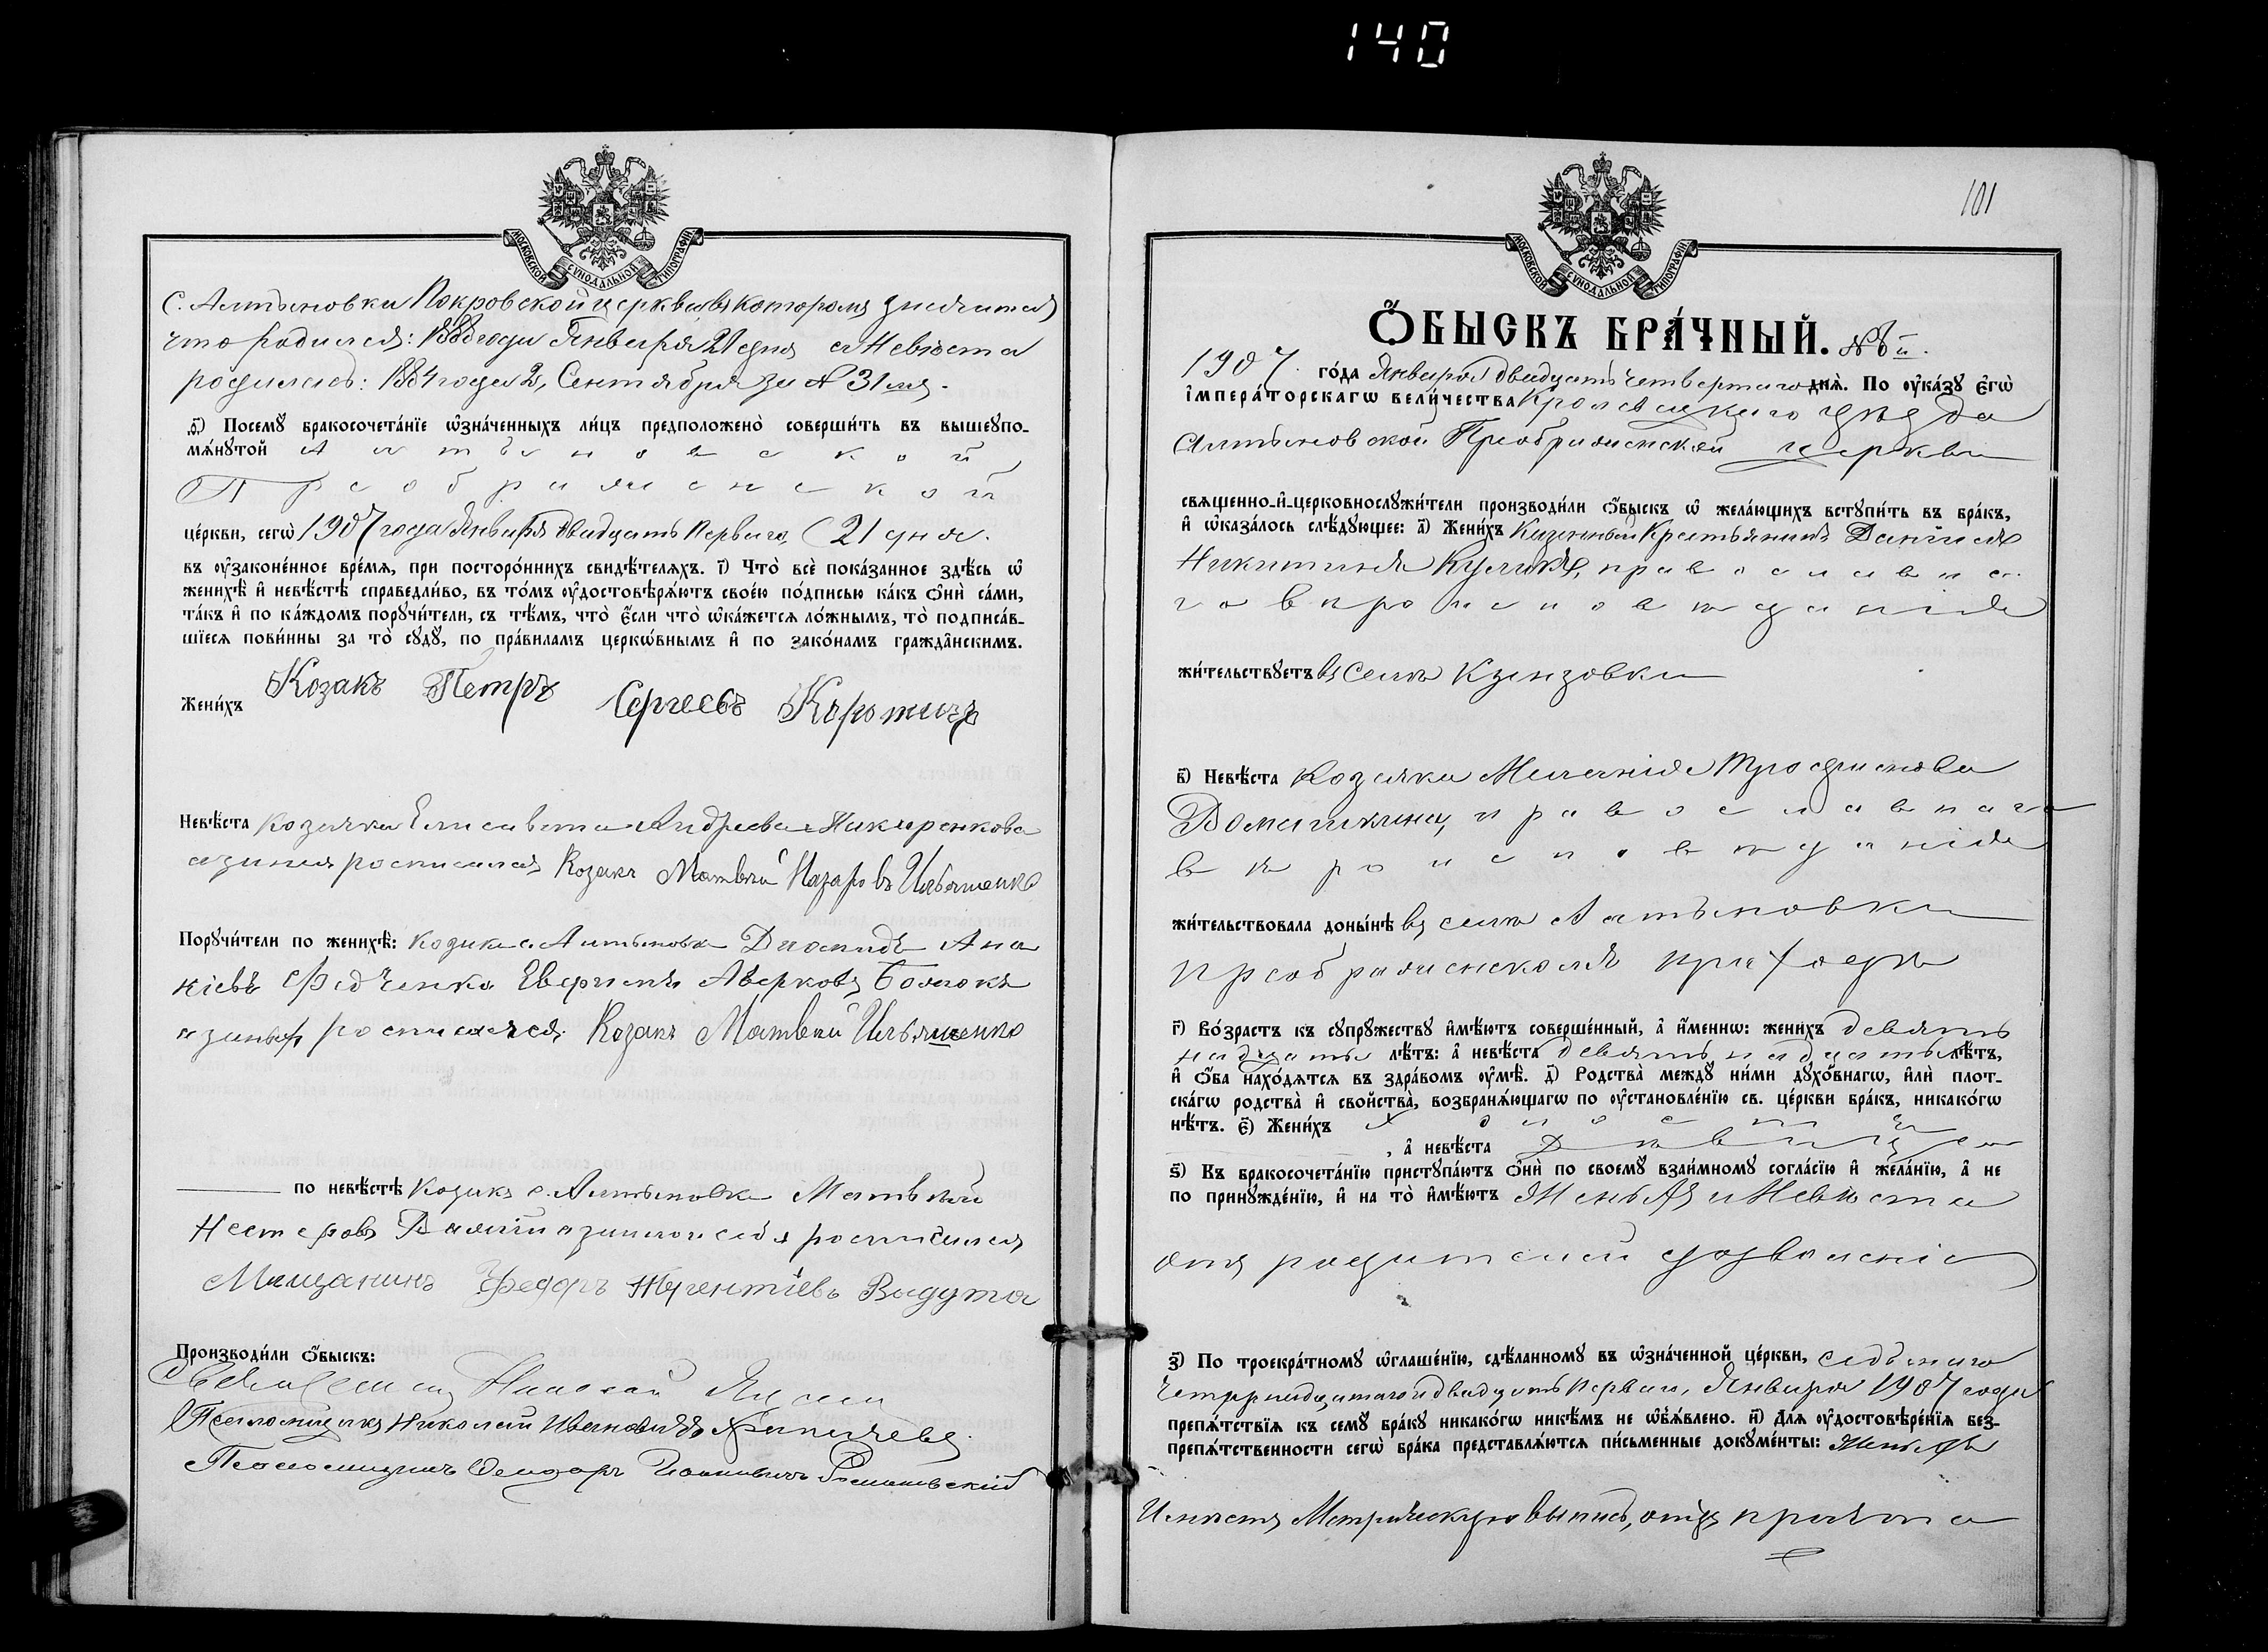 140
МОСКОВСКОЙ СѴНОДАЛЬНОЙ ТИПОГРАФІИ
С. Алтыновки Покровской церкви, въ которомъ значится
что родился: 1888 года Января 21 дня а Невѣста
родилась: 1884 года 2, Сентября за № 31мъ.
Ѳ҃) Посемꙋ̀ бракосочета́нїе ѡ҆зна́ченныхъ ли́цъ предположено̀ соверши́ть въ вышеꙋпо-
мѧ́нꙋтой Алтыновской
Преображенской
це́ркви, сегѡ̀ 1907 года Января двадцать перваго, 21 дня.
въ ᲂу҆законе́нное вре́мѧ, при посторо́ннихъ свидѣ́телѧхъ. І҃) Что̀ всѐ пока́занное здѣ́сь ѡ҆
женихѣ̀ и҆ невѣ́стѣ справедли́во, въ то́мъ ᲂу҆достовѣрѧ́ютъ свое́ю по́дписью ка́къ ѻ҆нѝ са́ми,
та́къ и҆ по ка́ждомъ порꙋчи́тели, съ тѣ́мъ, что̀ є҆́сли что̀ ѡ҆ка́жетсѧ ло́жнымъ, то̀ подписа́в-
шїесѧ пови́нны за то̀ сꙋдꙋ̀, по пра́виламъ церкѡ́внымъ и҆ по зако́намъ гражда̑нскимъ.
Жени́хъ Козакъ Петръ Сергѣевъ Коротичъ
Невѣ́ста козачка Елисавета Андреева
а за нея росписался Козакъ Матвѣй Назаровъ Ильяшенко
Порꙋчи́тели по женихѣ̀: козаки с. Алтыновки Ана
ніевъ Федченко Евфимъ Аверковъ
а за нихъ росписался: Козакъ Матвѣй Ильяшенко
по невѣ́стѣ козакъ с. Алтыновки Матвѣй
Нестеровъ росписался
Мещанинъ Федоръ Терентіевъ Видута
Производи́ли ѻ҆́быскъ:
Священникъ Николай
Псаломщикъ Николай Ивановичъ
Псаломщикъ
101
МОСКОВСКОЙ СѴНОДАЛЬНОЙ ТИПОГРАФІИ
Ѻ҆́БЫСКЪ БРА́ЧНЫЙ. №
1907 го́да Января двадцать четвертаго днѧ̀. По ᲂу҆ка́зꙋ є҆гѡ̀
і҆мпера́торскагѡ вели́чества Кролевецкаго уѣзда
Алтыновской Преображенской церкви
свѧщенно-и҆-церковнослꙋжи́тели производи́ли ѻ҆́быскъ ѡ҆ жела́ющихъ встꙋпи́ть въ бра́къ,
и҆ ѡ҆каза́лось слѣ́дꙋющее: а҃) Жени́хъ Казенный Крестьянинъ Даніилъ
Никитинъ Куликъ, православна
го вѣроисповѣданія
жи́тельствꙋетъ въ селѣ
в҃) Невѣ́ста Козачка Меланія Трофимова
православнаго
вѣроисповѣданія
жи́тельствовала доны́нѣ въ селѣ Алтыновки
преображенскомъ приходѣ
г҃) Во́зрастъ къ сꙋпрꙋ́жествꙋ и҆мѣ́ютъ соверше́нный, а҆ и҆́меннѡ: жени́хъ девять
надцать лѣ́тъ: а҆ невѣ́ста девятьнадцать лѣ́тъ,
и҆ ѻ҆́ба нахо́дѧтсѧ въ здра́вомъ ᲂу҆мѣ̀. д҃) Родства̀ междꙋ̀ ни́ми дꙋхо́внагѡ, и҆лѝ плот-
ска́гѡ родства̀ и҆ сво́йства̀, возбранѧ́ющагѡ по ᲂу҆становле́нїю св. це́ркви бра́къ, никако́гѡ
нѣ́тъ. є҃) Жени́хъ холостъ
, а҆ невѣ́ста Дѣвица
ѕ҃) Къ бракосочета́нїю пристꙋпа́ютъ ѻ҆нѝ по своемꙋ̀ взаи́мномꙋ согла́сїю и҆ жела́нїю, а҆ не
по принꙋжде́нїю, и҆ на то̀ и҆мѣ́ютъ Женихъ и Невѣста
отъ родителей дозволеніе
з҃) По троекра́тномꙋ ѡ҆глаше́нїю, сдѣ́ланномꙋ въ ѡ҆зна́ченной це́ркви, седьмаго
четырнадцатаго и двадцать перваго, Января 1907 года
препѧ́тствїѧ къ семꙋ̀ бра́кꙋ никако́гѡ никѣ́мъ не ѡ҆б̾ѧ́влено. и҃) Длѧ ᲂу҆достовѣре́нїѧ без-
препѧ́тственности сегѡ̀ бра́ка представлѧ́ютсѧ пи́сьменные докꙋме́нты: Женихъ
Имѣетъ Метрическую выпись, отъ причта